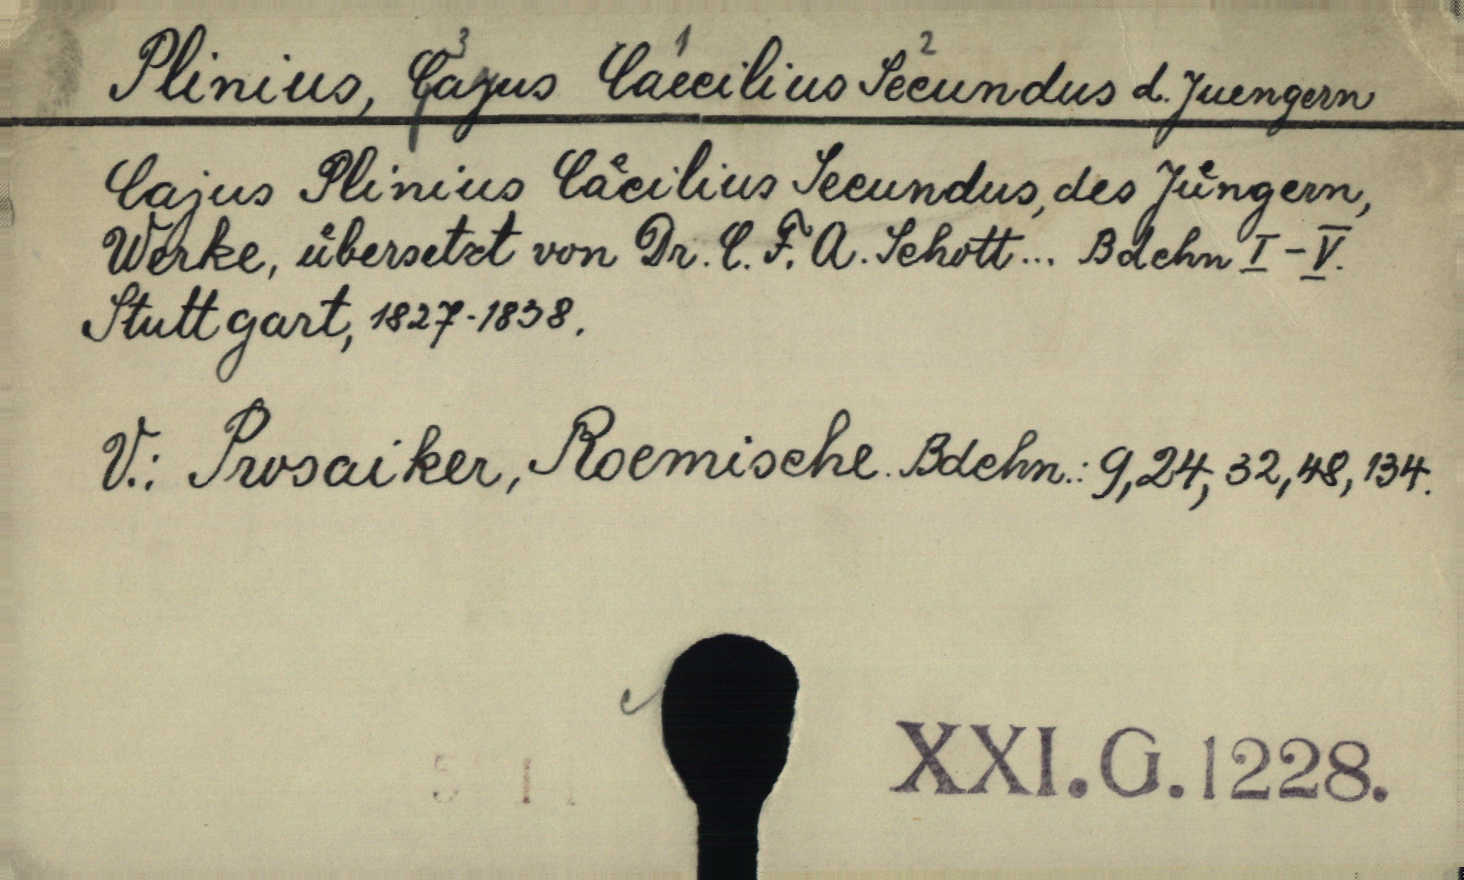 Plinius, Cajus Caecilius Secundus d. Juengern
3 1 2
Cajus Plinius Cäcilius Secundus, des Jüngern,
Werke, übersetzt von Dr. C. F. A. Schott... Bdchn I-V.
Stuttgart, 1827-1838.
V.: Prosaiker, Roemische. Bdchn.: 9, 24, 32, 48, 134.
XXI.G.1228.